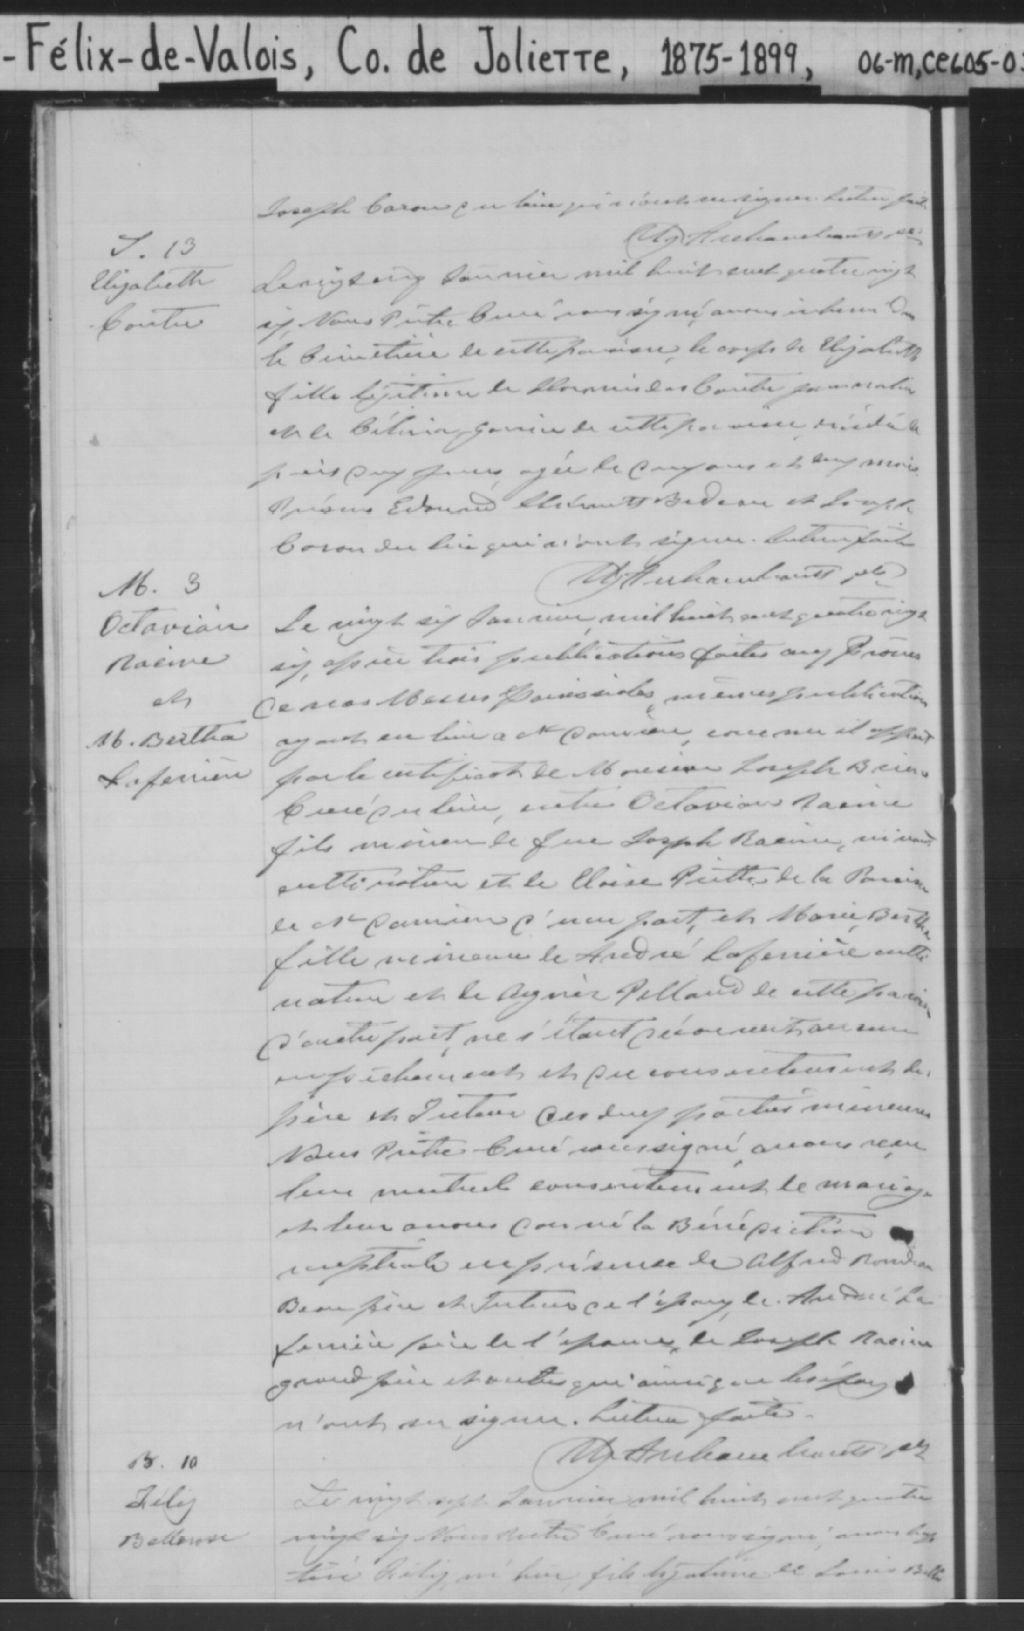 -Félix-de-Valois, Co. de Joliette, 1875-1899, 06-M,CE605-03
Joseph Caron du lieu qui n'ont su signer. Lecture faite
Archambault ptr
S. 13
Elizabeth
Coutu
Le vingt six Janvier mil huit cent quatre vingt
six, Nous Prêtre Curé soussigné, avons inhumé dans
le Cimetière de cette paroisse, le corps de Elizabeth
fille légitime de Coutu journalier
et de de cette paroisse, décédée de
puis deux jours, agée de ans et mois.
Présens Edouard Bedeau et Joseph
Caron du lieu qui n'ont signer. Lecture faite
Archambault ptr
M. 3
Octavian
Racine
et
M. Bertha
Laferrière
Le vingt six Janvier, mil huit cent quatre vingt
six, après trois publications faites aux Prônes
de nos Messes Paroissiales, mêmes publications
ayant eu lieu a St Damien, comme il appert
par le certificat de Monsieur Joseph
Curé du lieu, entre Octavian Racine
fils mineur de feu Joseph Racine, vivant
cultivateur et de Eloise Piette de la Paroisse
de St Damien d'une part, et Marie Bertha
fille mineure de André Laferrière culti
vateur et de Agnès Pelland de cette paroisse
d'autre part, ne s'étant découvert aucun
empêchement et du consentement des
père et Tuteur des deux parties mineures
Nous Prêtre Curé soussigné, avons reçu
leur mutuel consentement de mariage
et leur avons donné la Bénédiction
nuptiale en présence de Alfred Rondeau
Beau père et Tuteur de l'époux, de André La
ferrière père de l'épouse, de Joseph Racine
grand père et autres qui ainsi que les époux
n'ont su signer. Lecture faite.
Archambault ptr
B. 10
Félix
Bellerose
Le vingt sept Janvier mil huit cent quatre
vingt six Nous Prêtre Curé soussigné, avons bap
tisé Félix, né hier, fils légitime de Louis Belle